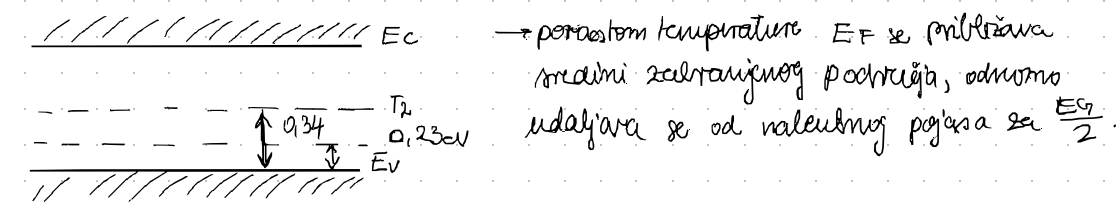 Ec
T2
0,34
0,23eV
Ev
→ porastom temperature EF se približava
sredini zabranjenog područja, odnosno
udaljava se od valentnog pojasa za EG/2.